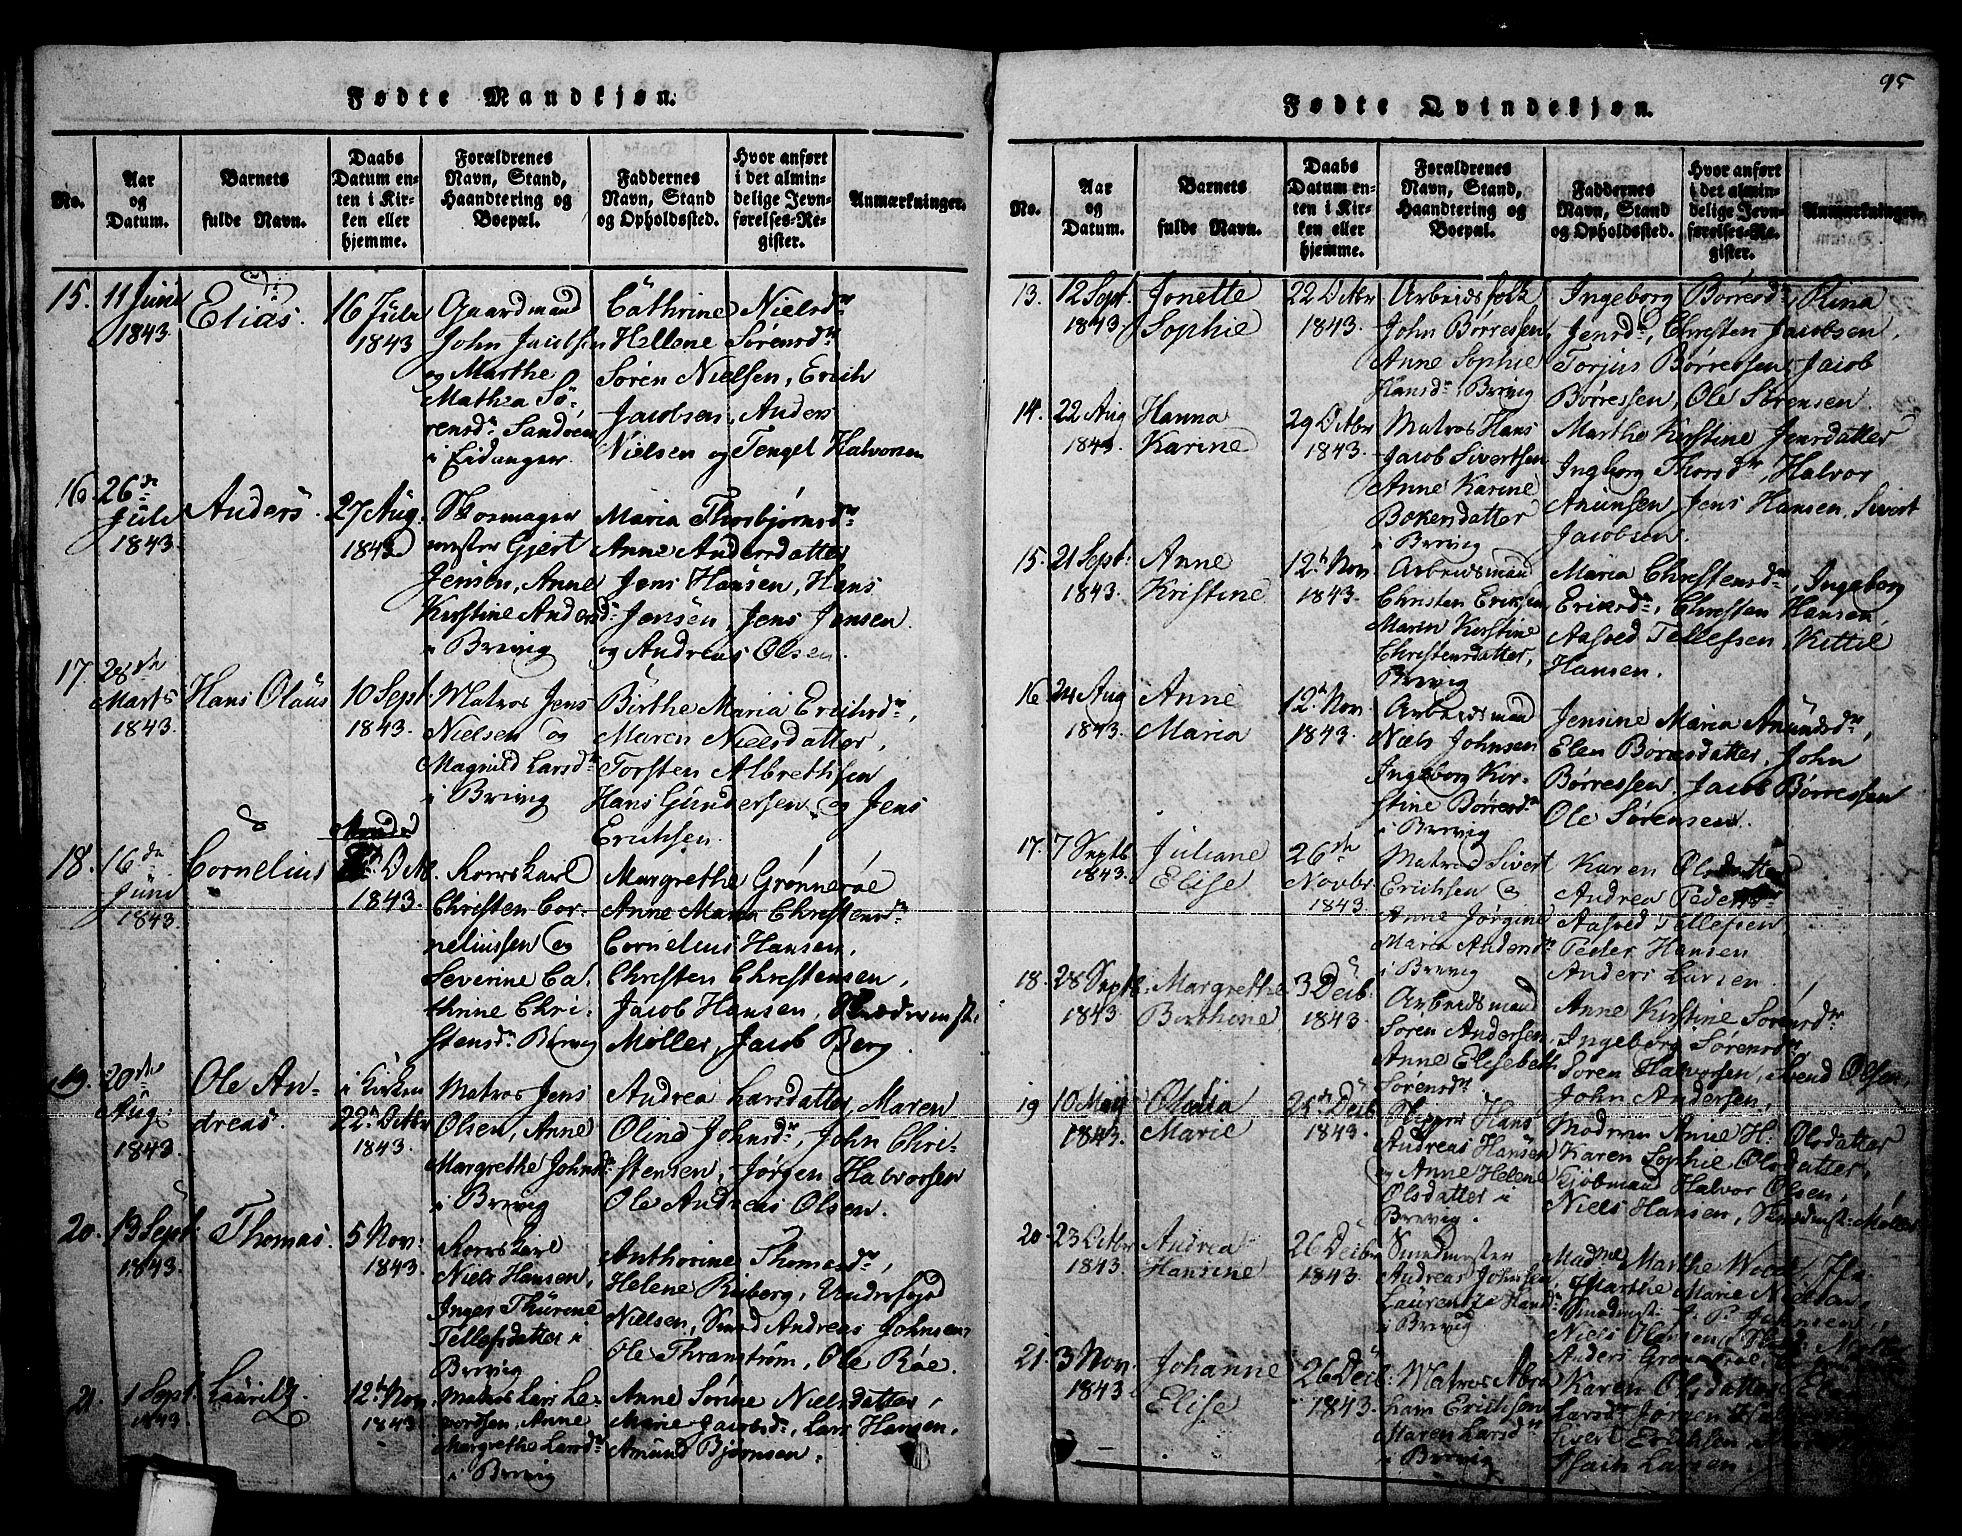 Fødte Mandkjøn.
No.
Aar og Datum.
Barnets fulde Navn.
Daabs Datum enten i Kirken eller hjemme.
Forældrenes Navn, Stand, Haandtering og Boepæl.
Faddernes Navn, Stand og Opholdssted.
Hvor anført i det almindelige Jevnførelses-Register.
Anmærkninger.
15. 11 Juni 1843
Elias.
16 Julii 1843
Gaardmand
John Jacobsen
og Marthe
Mathea Sö,
rensdr Sandøen
i Eidanger.
Cathrine Nielsdr
Hellene Sörensdr
Sören Nielsen, Erich
Jacobsen, Anders
Nielsen og Tengel Halvorsen
16. 26de Julii 1843
Anders
27 Aug. 1843
Skomager
mester Gjert
Jensen, Anne
Kirstine Andersdr
i Brevig
Maria Thorbjørnsdr
Anne Andersdatter
Jens Hansen, Hans
Jensen, Jens Jensen
og Andreas Olsen.
17. 28de Marts 1843
Hans Olaus
10 Sept. 1843.
Matros Jens
Nielsen og
Magnild Larsdr
i Brevig
Birthe Maria Erichsdr,
Maren Nielsdatter,
Torsten Albrethsen
Hans Gundersen og Jens
Erichsen.
18. 16de Juni 1843
Cornelius
Octb. 1843.
Rorskarl
Christen Cor-
neliussen og
Severine Ca-
thrine Chri-
stensdr Brevig
Margrethe Grønneröe
Anne Maria Christensdr
Cornelius Hansen,
Christen Christensen,
Jacob Hansen,
Møller, Jacob Berg.
19. 20de Aug: 1843
Ole An-
dreas.
i Kirken
22de Octbr 1843.
Matros Jens
Olsen, Anne
Margrethe Johnsdr
i Brevig
Andrea Larsdatter, Maren
Olina Johnsdr, John Chri-
stensen, Jørgen Halvorsen
Ole Andreas Olsen.
20. 13 Sept. 1843
Thomas.
5 Nov: 1843.
Rorskarl
Niels Hansen,
Inger Thurine
Tellefsdatter i
Brevig
Anthorine Thomasdr,
Helene Riiberg,
Nielsen, Smed Andreas Johnsen,
Ole Thranstrøm, Ole Röe.
21. 1 Sept. 1843
Lauritz.
12te Nov 1843
Matros Lars Le-
vordsen, Anne
Margrethe Larsdr
i Brevig
Anne Sørine Nielsdatter,
Marie Jacobsdr, Lars Hansen,
Amund Bjørnsen.
95
Fødte Qvindekjøn.
No.
Aar og Datum.
Barnets fulde Navn.
Daabs Datum enten i Kirken eller hjemme.
Forældrenes Navn, Stand, Haandtering og Boepæl.
Faddernes Navn, Stand og Opholdssted.
Hvor anført i det almindelige Jevnførelses-Register.
Anmærkninger.
13. 12 Sept. 1843
Jonette
Sophie
22 Octbr 1843.
Arbeidsfolk
John Børresen
Anne Sophie
Hansdr, Brevig
Ingeborg Børresdr, Olina
Jensdr, Christen Jacobsen,
Torjus Børressen, Jacob
Børressen, Ole Sörensen.
14. 22 Aug 1843
Hanna
Karine
29 Octbr 1843.
Matros Hans
Jacob Sivertsen
Anne Karine
Bokersdatter
i Brevig
Marthe Kirstine Jensdatter
Ingborg Thorsdr, Halvor
Anunsen, Jens Hansen, Sivert
Jacobsen.
15. 21 Sept: 1843.
Anne
Kristine
12te Nov 1843.
Arbeidsmand
Christen Eriksen,
Maren Kirstine
Christensdatter,
Brevig
Maria Christensdr, Ingeborg
Eriksdr, Christen Hansen,
Aasved Tellefsen, Kittil
Hansen.
16. 24 Aug 1843.
Anne
Maria
12te Nov. 1843.
Arbeidsmand
Niels Johnsen
Ingeborg Kir-
stine Børresdr
i Brevig
Jensine Maria Amundsdr,
Elen Børresdatter, John
Børressen Jacob Børressen
Ole Sørensen.
17. 7 Septb. 1843.
Juliane
Elise
26de Novbr 1843
Matros Sivert
Erichsen og
Anne Jørgine
Maria Andersdr
i Brevig
Karen Olsdatter
Andrea Peders
Aasved Tellefsen
Peder Hansen
Anders Larsen.
18. 28 Septb. 1843
Margrethe
Berthine
3 Decb. 1843.
Arbeidsmand
Sören Andersen.
Anne Elisebeth
Sörensdr
Anne Kirstine Sörensdr
Ingeborg Sörensdr,
Sören Halvorsen, Svend Olsen,
John Andersen,
19 10 Maij 1843.
Olalia
Marie
25de Decb 1843.
Skipper Hans
Andreas Hansen
og Anne Helene
Olsdatter i
Brevig.
Madmen Anne H. Olsdatter
Karen Sophie Olsdatter,
Kjöbmand Halvor Olsen,
Niels Hansen, Smedmst: Møller
20. 23 Octbr 1843.
Andrea
Hansine
26 Decbr 1843.
Smedmester
Andreas Johnsen,
Laurentze Hansdr
i Brevig
Madme Marthe
Marthe Marie Nielsen,
Smedmst: J. P. Johnsen,
Niels
Anders
21. 3 Nov. 1843.
Johanne
Elise
26 Decb. 1843.
Matros Abra
ham Erichsen
Maren Larsdr
i Brevig
Karen Olsdatter, Elen
Larsdr Jørgen
Sivert Erichsen
Isach Larsen.